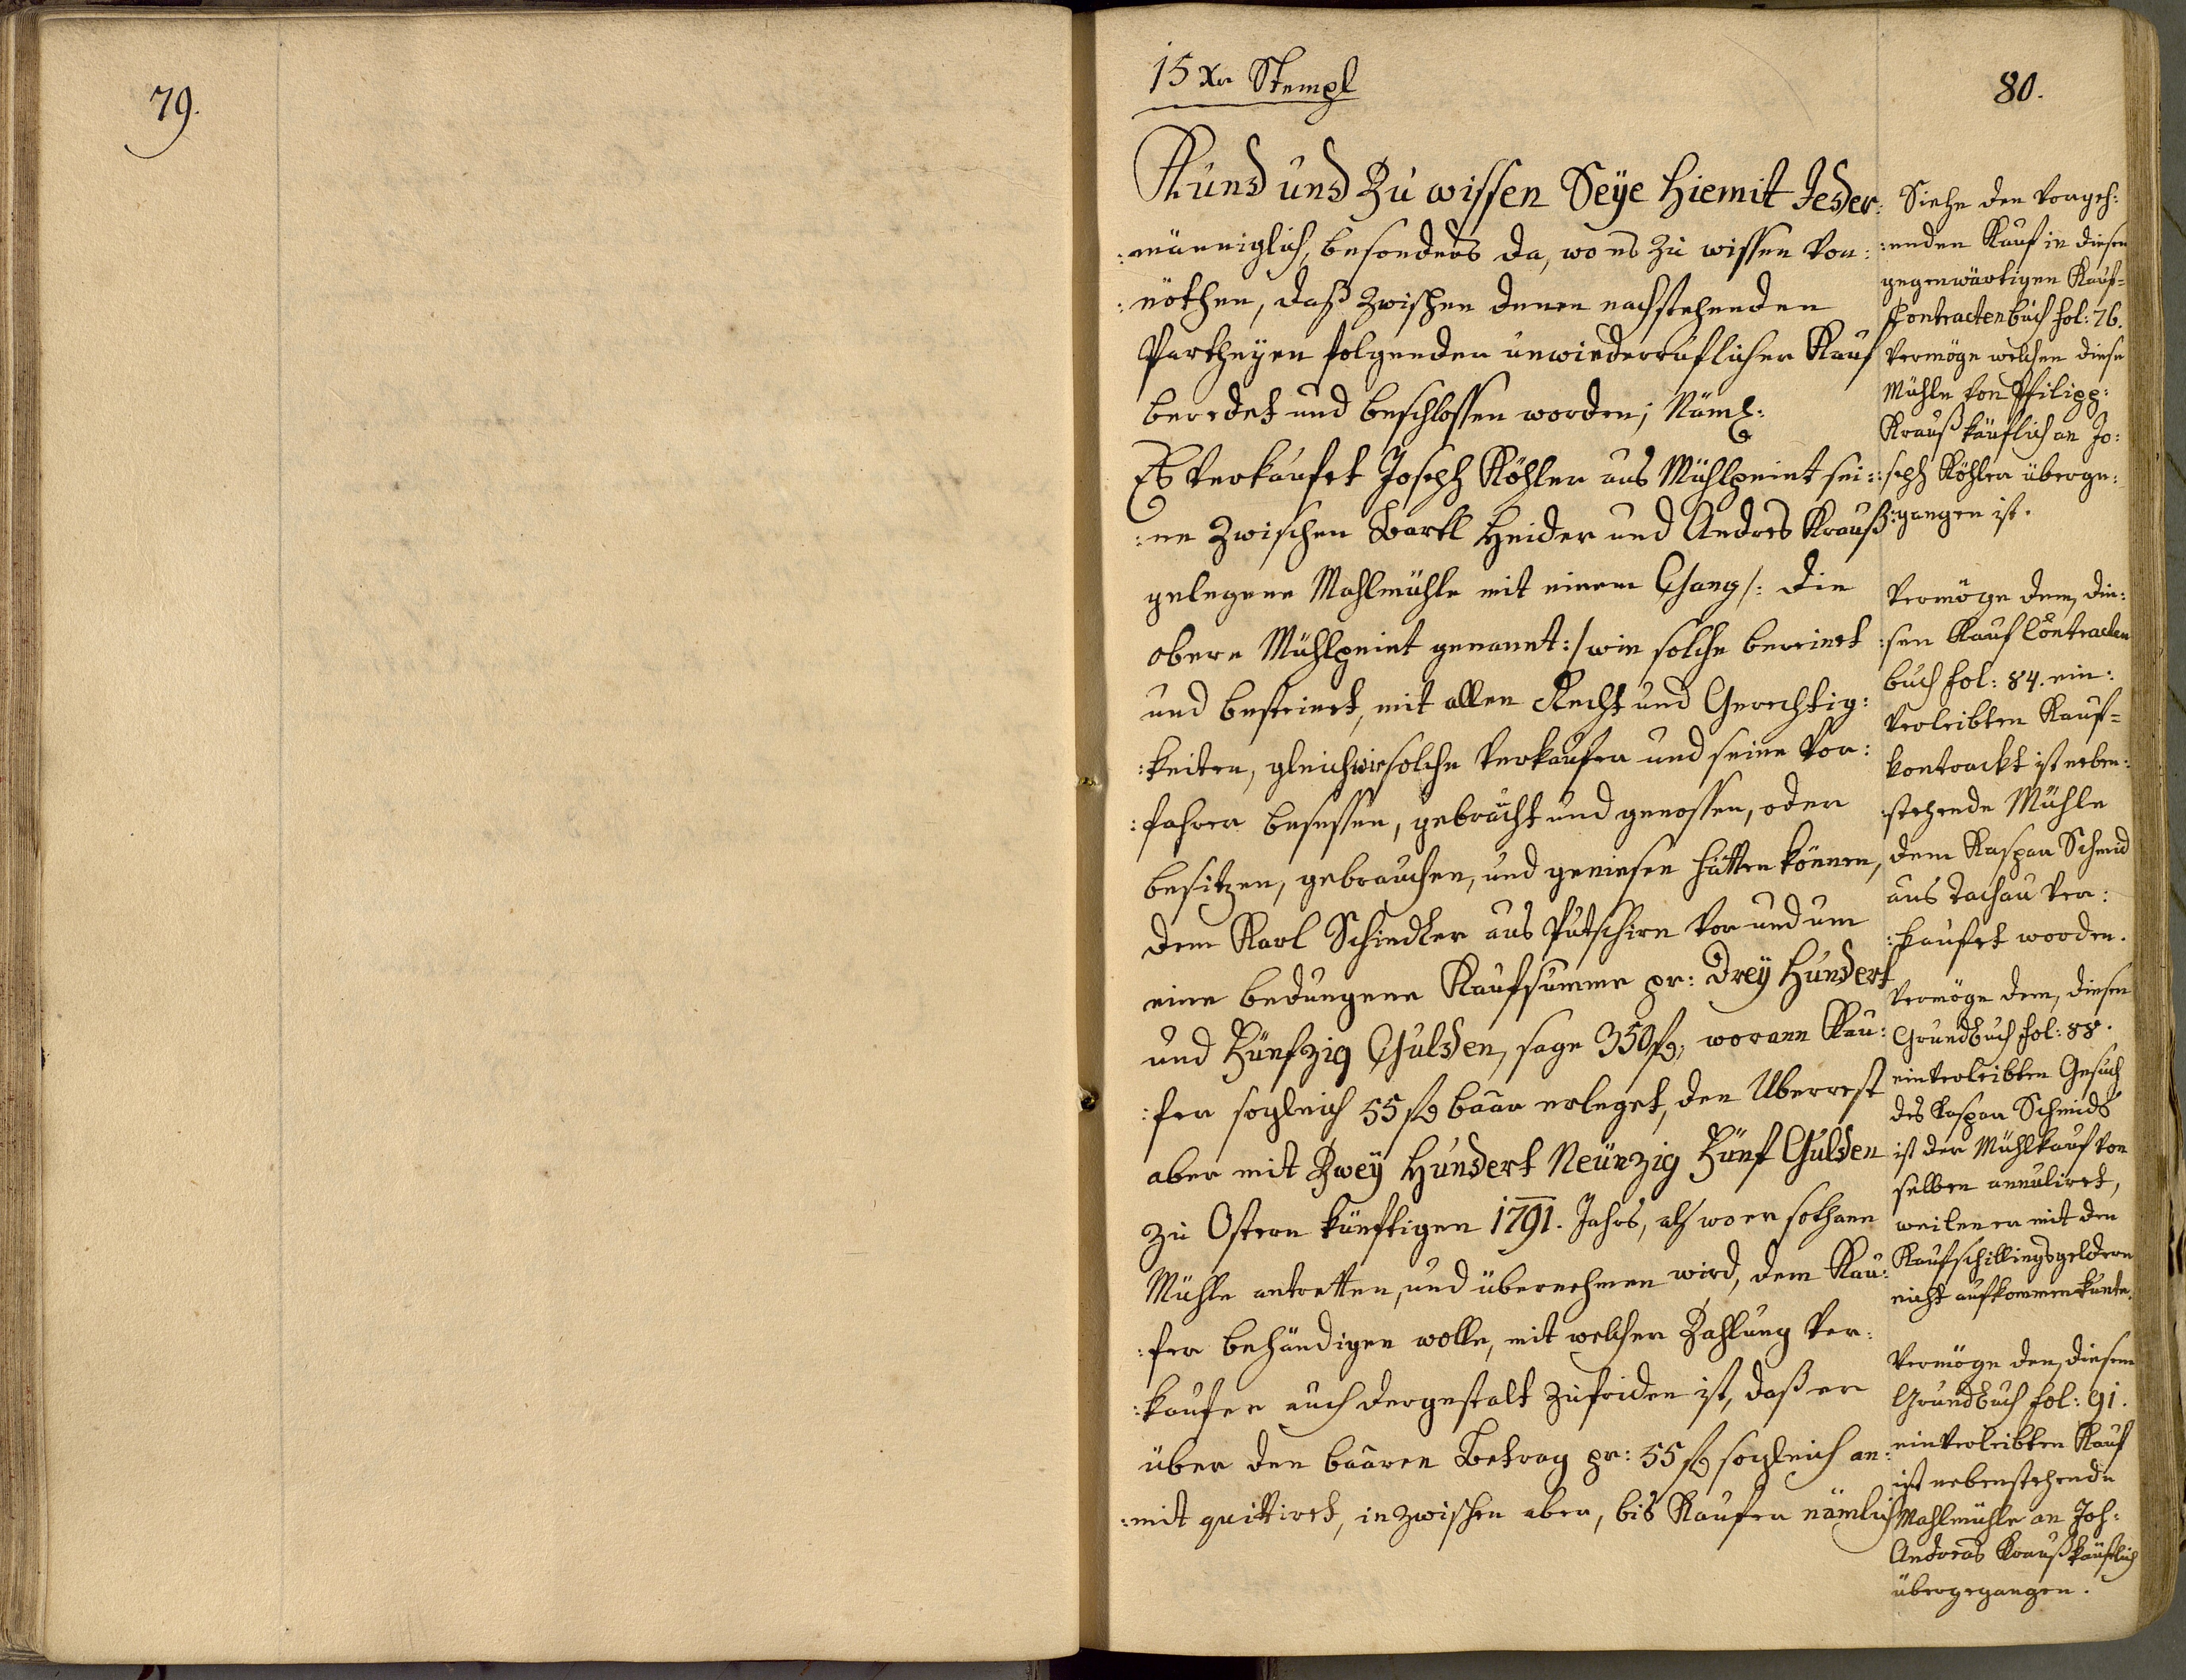 79.
15 Xr Stempl
80.
Kund und Zu wissen Seÿe Hiemit Jeder:
:männiglich, besonders da, wo es zu wissen von:
:nöthen, daß zwischen denen nachstehenden
Partheÿen folgender unwiederruflicher Kauf
beredet und beschlossen worden; Näml:
Es verkaufet Joseph Köhler aus Mühlpeint sei:
:ne zwischen Bartl Heider und Andres Krauß
gelegene Mahlmühle mit einem Gang /: die
obere Mühlpeint genannt :/ wie solche bereinet
und besteinet, mit allen Recht und Gerechtig:
:keiten, gleichwie solche Verkaufer und seine Vor:
:fahrer besessen, gebraucht und genossen, oder
besitzen, gebrauchen, und geniesen hätten können,
dem Karl Schindler aus Putschirn vor und um
eine bedungene Kaufsumme pr: Dreÿ Hundert
und Fünfzig Gulden, sage 350 fl, worann Kau:
:fer sogleich 55 fl baar erleget, den Uberrest
aber mit Zweÿ Hundert Neünzig Fünf Gulden
zu Ostern künftigen 1791. Jahrs, als wo er sothane
Mühle antretten, und übernehmen wird, dem Kau:
:fer behändigen wolle, mit welcher Zahlung Ver:
:kaufer auch dergestalt zufriden ist, daß er
über den baaren Betrag pr: 55 fl sogleich an:
:mit quittiret, inzwischen aber, bis Kaufer nämlich
Siehe den vorgeh:
:enden Kauf in diesen
gegenwärtigen Kauf=
Contractenbuch fol: 76.
vermöge welchen diese
Mühle von Philipp:
Krauß käuflich an Jo:
:seph Köhler überge:
:gangen ist.
Vermöge dem, die:
:sen Kauf Contracten
buch fol: 84. ein:
verleibten Kauf=
kontrackt ist neben:
:stehende Mühle
dem Kaspar Schmid
aus Tachau ver:
:kaufet worden.
Vermöge dem, diesen
Grundbuch fol: 88.
einverleibten Gesuch
des Kaspar Schmids
ist der Mühlkauf von
selben annuliret,
weilen er mit den
Kaufschillingsgeldern
nicht aufkommen kunte.
Vermöge den, diesem
Grundbuch fol: 91.
einverleibten Kauf
ist nebenstehende
Mahlmühle an Joh:
Andreas Krauß käuflich
übergegangen.